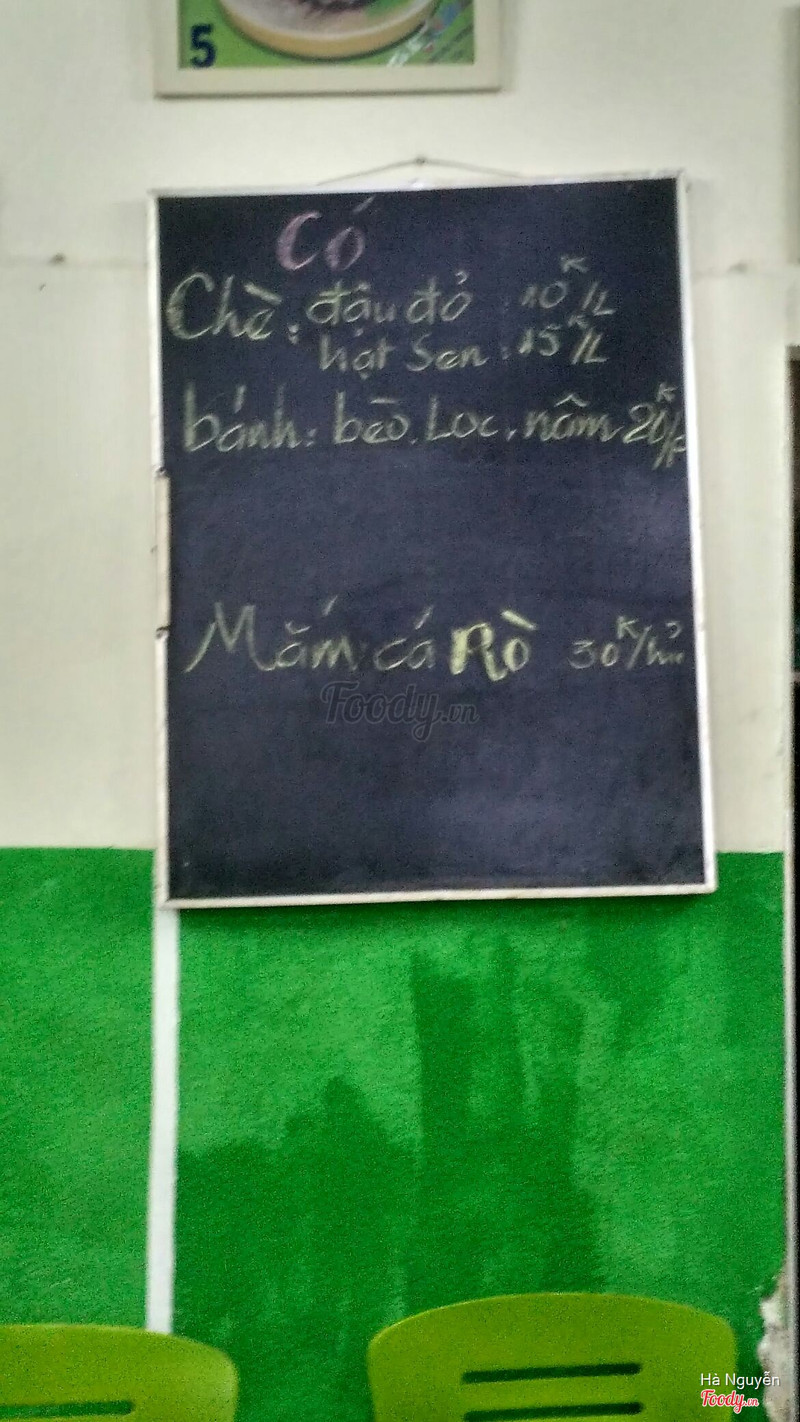 5
Có
Chè: đậu đỏ : 10K/L
hạt sen : 15K/L
bánh: bèo, Lọc, nậm 20K/P
Mắm cá Rô 30K/hủ
Foody.vn
Hà Nguyễn
Foody.vn